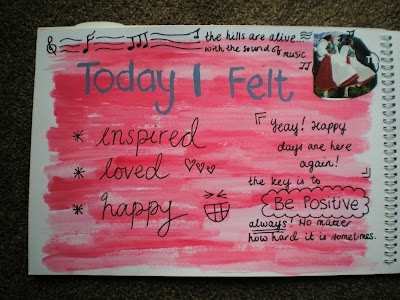 the hills are alive...
with the sound of music
Today I Felt
* inspired
* loved
* happy
Yeay! Happy
days are here
again!
the key is to
Be Positive
always! No matter
how hard it is sometimes.